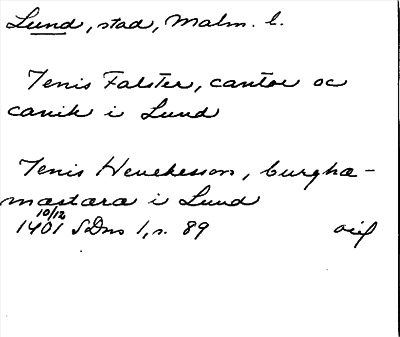 Lund, stad, Malm. l.
Jenis Falster, cantor oc
canik i Lund
Jenis Henekesson, burgha-
mæstara i Lund
10/12
1401 SDns 1, s. 89